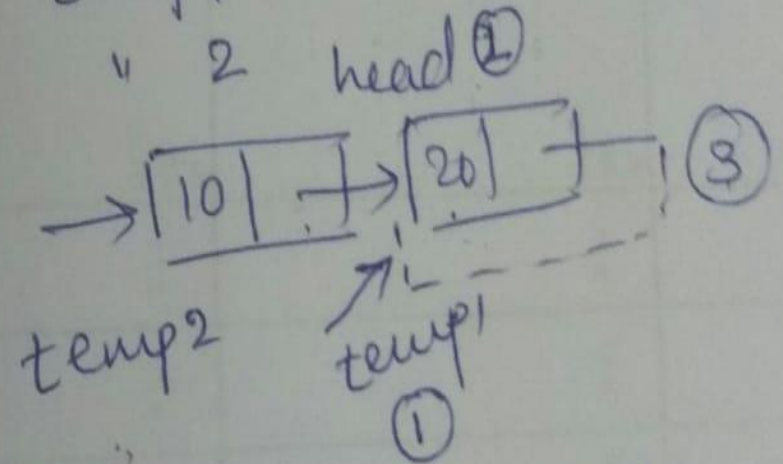 " 2 head ②
10 20 ③
temp2 temp1
①